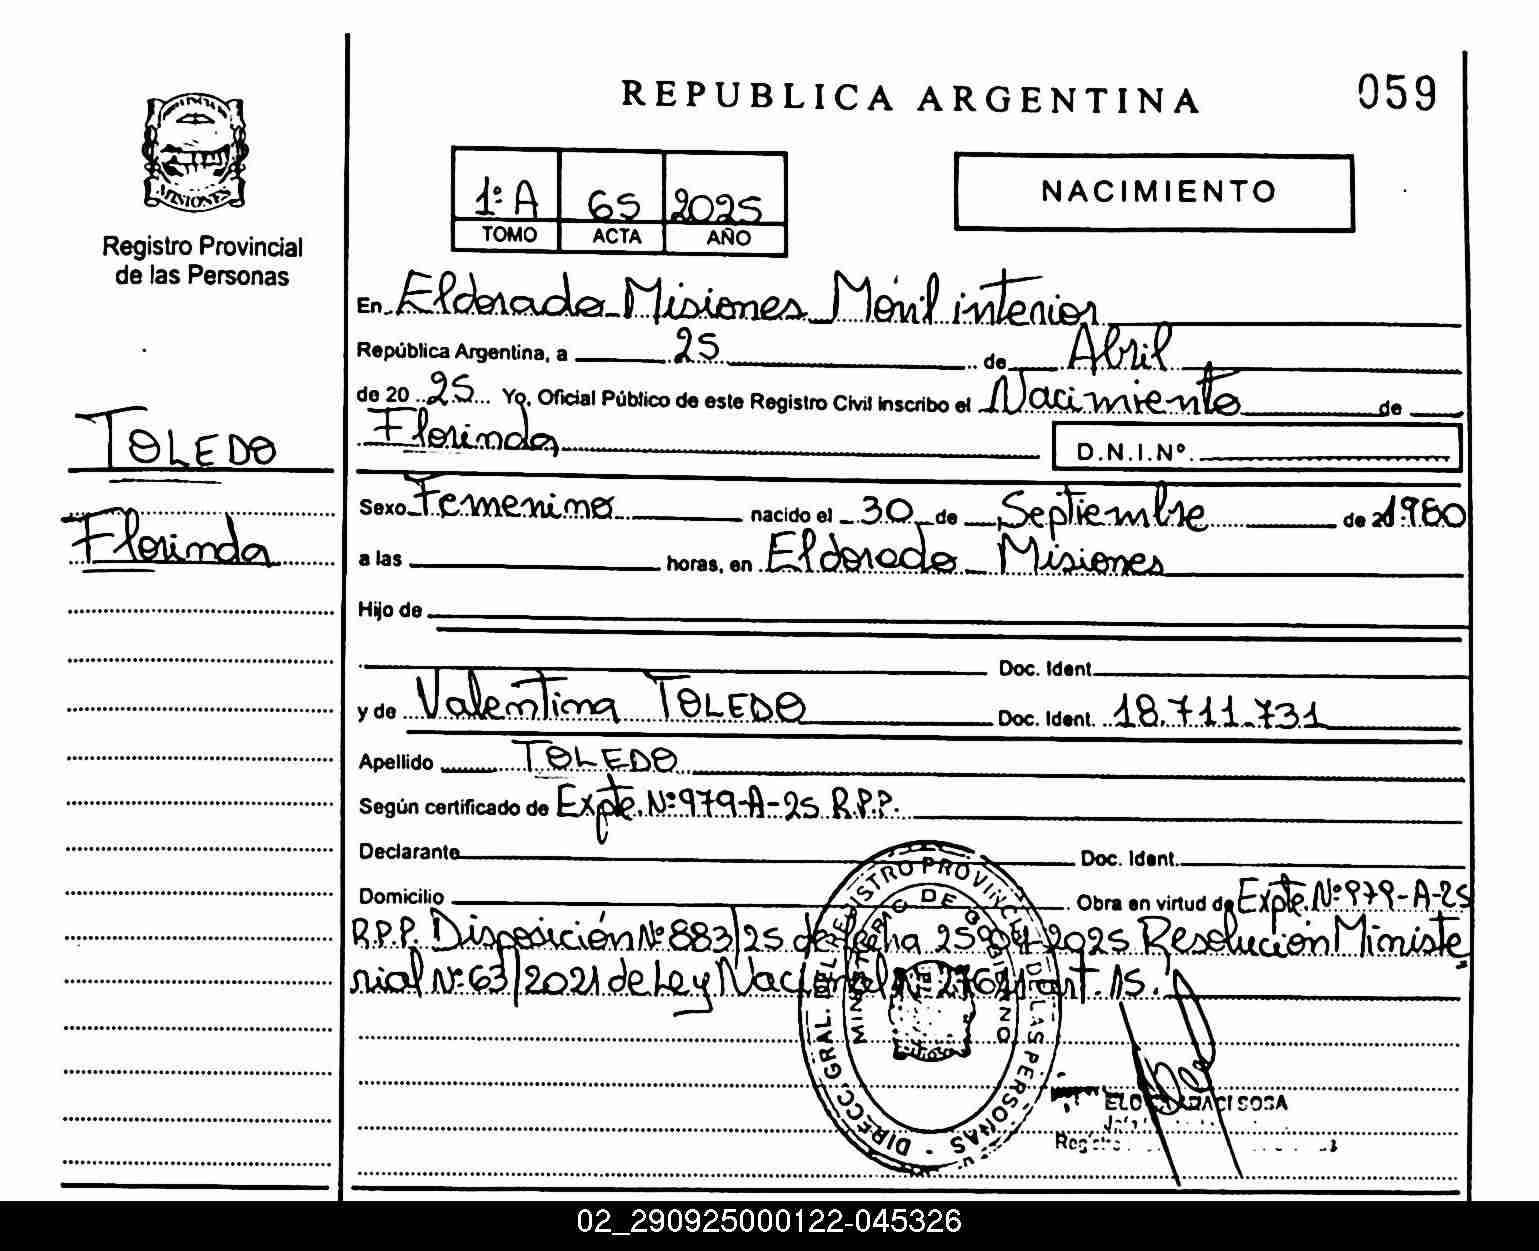 REPUBLICA ARGENTINA
059
MISIONES
Registro Provincial
de las Personas
1º A 65 2025
TOMO ACTA AÑO
NACIMIENTO
En Eldorado Misiones Móvil interior
República Argentina, a 25 de Abril
de 20 25 Yo, Oficial Público de este Registro Civil inscribo el Nacimiento de
Florinda
D.N.I.Nº.
TOLEDO
Florinda
Sexo Femenino nacido el 30 de Septiembre de 1980
a las horas, en Eldorado Misiones
Hijo de
Doc. Ident.
y de Valentina TOLEDO Doc. Ident. 18.711.731
Apellido TOLEDO
Según certificado de Expte. Nº 979-A-25 R.P.P.
Declarante Doc. Ident.
Domicilio Obra en virtud de Expte. Nº 979-A-25
R.P.P. Disposición Nº 883/25 de fecha 25-04-2025 Resolución Ministe
rial Nº 63/2021 de Ley Nacional Nº art. 15.
DIRECC. GRAL. DEL REGISTRO PROVINCIAL DE LAS PERSONAS
MINISTERIO DE GOBIERNO
SOSA
02_290925000122-045326